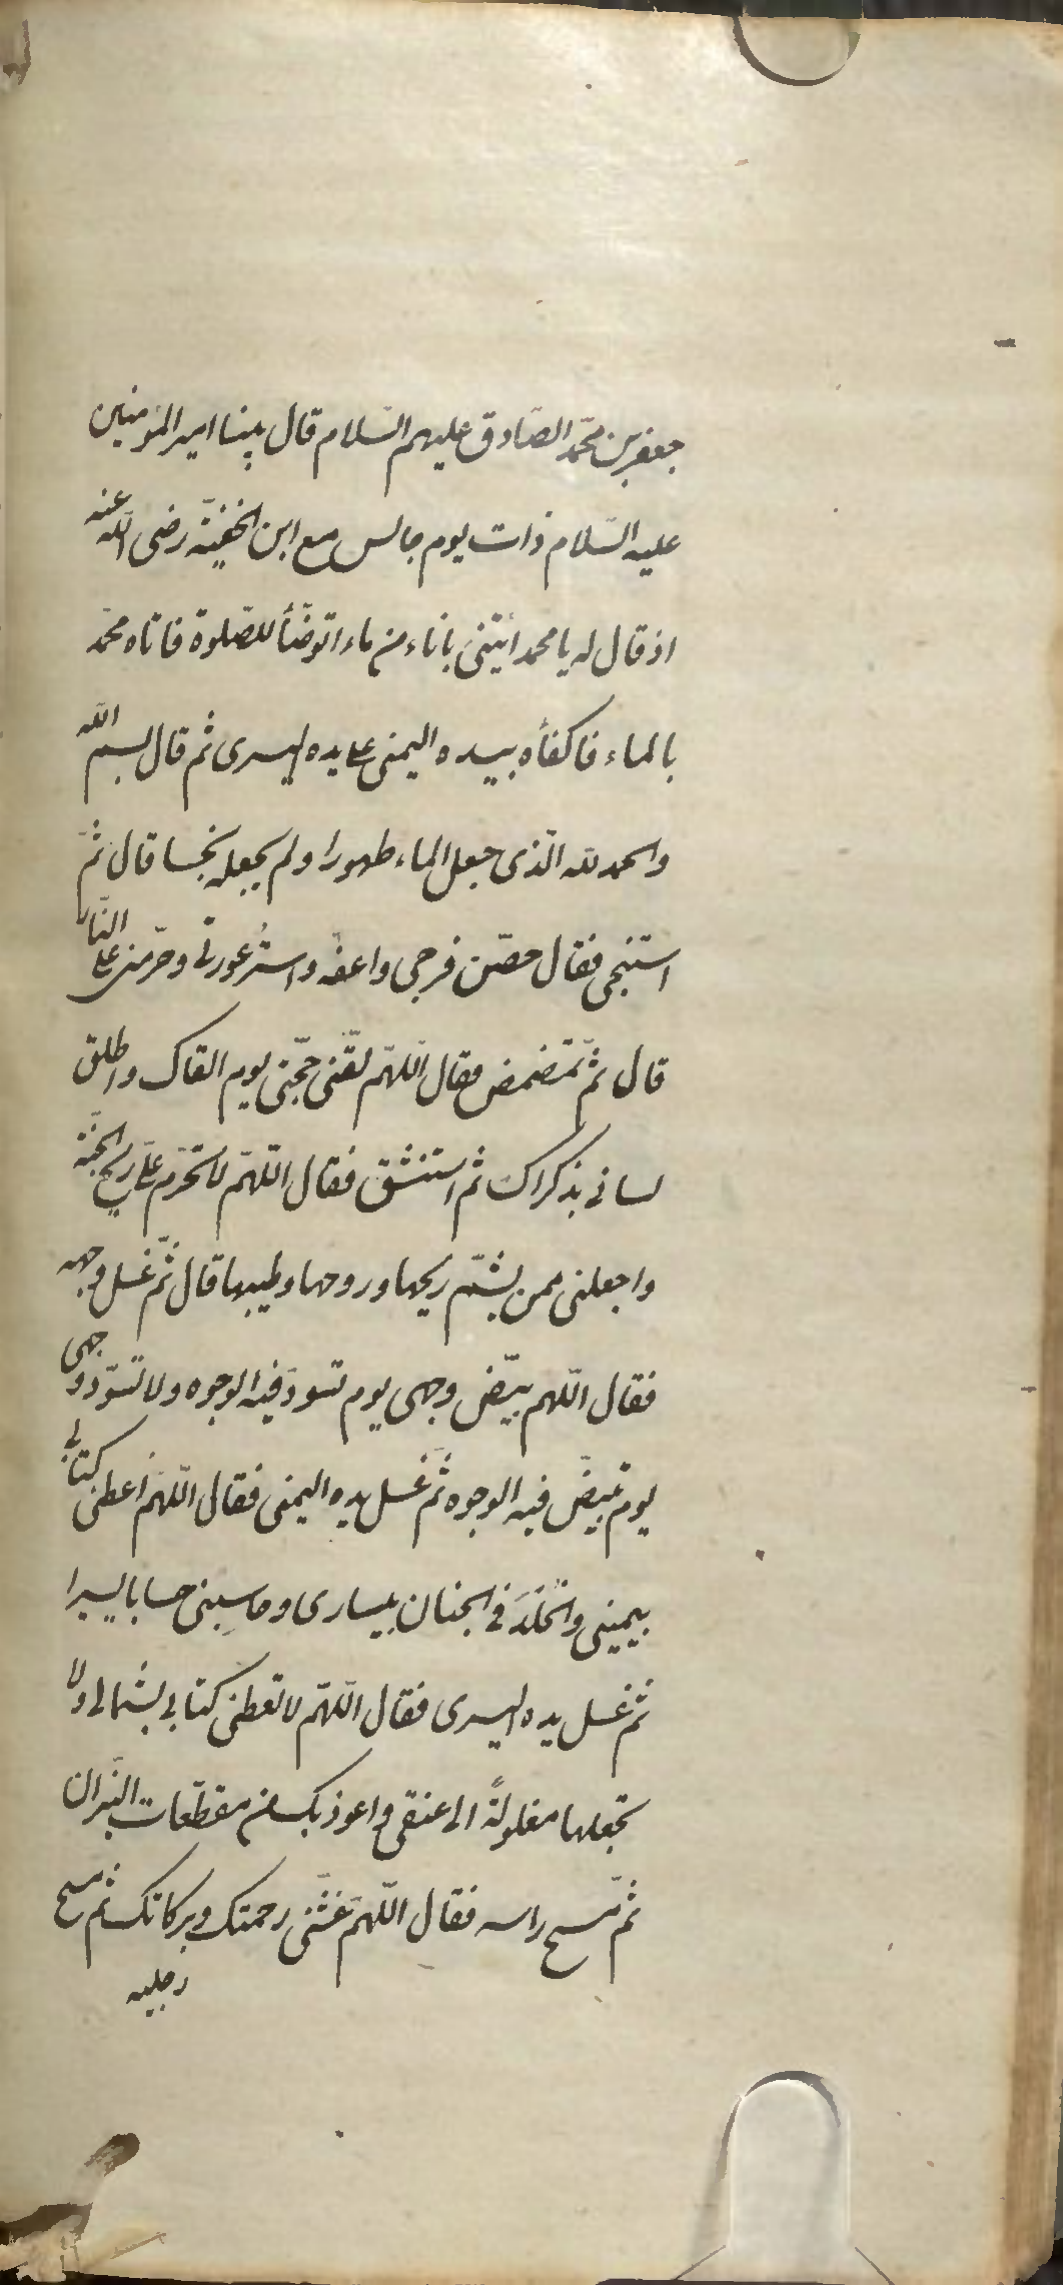 جعفر بن محمّد الصّادق عليهم السّلام قال بينا امير المؤمنين
عليه السّلام ذات يوم جالس مع ابن الحنفيّة رضى اللّه عنه
اذ قال له يا محمد ائتنى باناء من ماء اتوضّأ للصّلوة فاتاه محمّد
بالماء فاكفأه بيده اليمنى على يده اليسرى ثم قال بسم اللّه
والحمد للّه الّذى جعل الماء طهورا ولم يجعله نجسا قال ثمّ
استنجى فقال حصّن فرجى واعفّه واستر عورتى وحرّمنى على النّار
قال ثمّ تمضمض فقال اللّهمّ لقّنى حجّتى يوم القاك واطلق
لسانى بذكراك ثم استنشق فقال اللّهمّ لا تحرّم علىّ ريح الجنّة
واجعلنى ممن يشمّ ريحها وروحها وطيبها قال ثمّ غسل وجهه
فقال اللّهم بيّض وجهى يوم تسودّ فيه الوجوه ولا تسوّد وجهى
يوم تبيضّ فيه الوجوه ثمّ غسل يده اليمنى فقال اللّهمّ اعطنى كتابى
بيمينى والخلد فى الجنان بيسارى وحاسبنى حسابا يسيرا
ثم غسل يده اليسرى فقال اللّهمّ لا تعطنى كتابى بشمالى ولا
تجعلها مغلولةً الى عنقى واعوذ بك من مقطّعات النّيران
ثمّ مسح راسه فقال اللّهمّ غشّنى رحمتك وبركاتك ثم مسح
رجليه